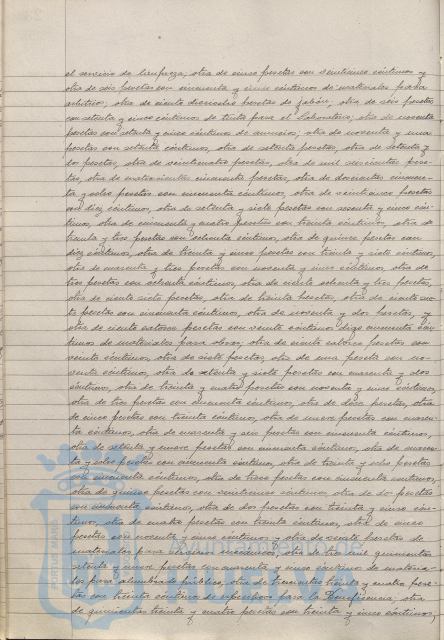 el servicio de limpieza, otra de cinco pesetas con veinticinco céntimos y
otra de seis pesetas con cincuenta y cinco céntimos de materiales para
arbitrios; otra de ciento dieciseis pesetas de jabón, otra de seis pesetas
con setenta y cinco céntimos de tinta para el Laboratorio, otra de noventa
pesetas con setenta y cinco céntimos de anuncios; otra de noventa y una
pesetas con setenta céntimos, otra de setenta pesetas, otra de setenta y
dos pesetas, otra de veinticuatro pesetas, otra de mil pese-
tas, otra de cuatrocientas cincuenta pesetas, otra de doscientas cincuen-
ta y ocho pesetas con cincuenta céntimos, otra de veintinueve pesetas
con diez céntimos, otra de setenta y siete pesetas con sesenta y cinco cén-
timos, otra de cincuenta y cuatro pesetas con treinta céntimos, otra de
treinta y tres pesetas con ochenta céntimos, otra de quince pesetas con
diez céntimos, otra de treinta y cinco pesetas con treinta y siete céntimos,
otra de cuarenta y tres pesetas con noventa y cinco céntimos, otra de
tres pesetas con ochenta céntimos, otra de ciento ochenta y tres pesetas,
otra de ciento siete pesetas, otra de treinta pesetas, otra de ciento
pesetas con cincuenta céntimos, otra de noventa y dos pesetas, y
otra de ciento catorce pesetas con veinte céntimos digo cincuenta cén-
timos de materiales para obras, otra de ciento catorce pesetas con
veinte céntimos, otra de siete pesetas, otra de una peseta con no-
venta céntimos, otra de setenta y siete pesetas con cuarenta y dos
céntimos, otra de treinta y cuatro pesetas con noventa y cinco céntimos,
otra de tres pesetas con cincuenta céntimos, otra de doce pesetas, otra
de cinco pesetas con treinta céntimos, otra de nueve pesetas con cuaren-
ta céntimos, otra de cuarenta y seis pesetas con cincuenta céntimos,
otra de setenta y nueve pesetas con cincuenta céntimos, otra de cuaren-
ta y ocho pesetas con cincuenta céntimos, otra de treinta y ocho pesetas
con cincuenta céntimos, otra de trece pesetas con cincuenta céntimos,
otra de quince pesetas con veinticinco céntimos, otra de dos pesetas
con cincuenta céntimos, otra de dos pesetas con treinta y cinco cén-
timos, otra de cuatro pesetas con treinta céntimos, otra de cinco
pesetas con noventa y cinco céntimos y otra de sesenta pesetas de
materiales para otra de tres mil quinientas
setenta y nueve pesetas con cuarenta y cinco céntimos de materia-
les para alumbrado público, otra de trescientas treinta y cuatro pese-
tas con treinta céntimos de para la Beneficencia, otra
de quinientas treinta y cuatro pesetas con treinta y cinco céntimos,